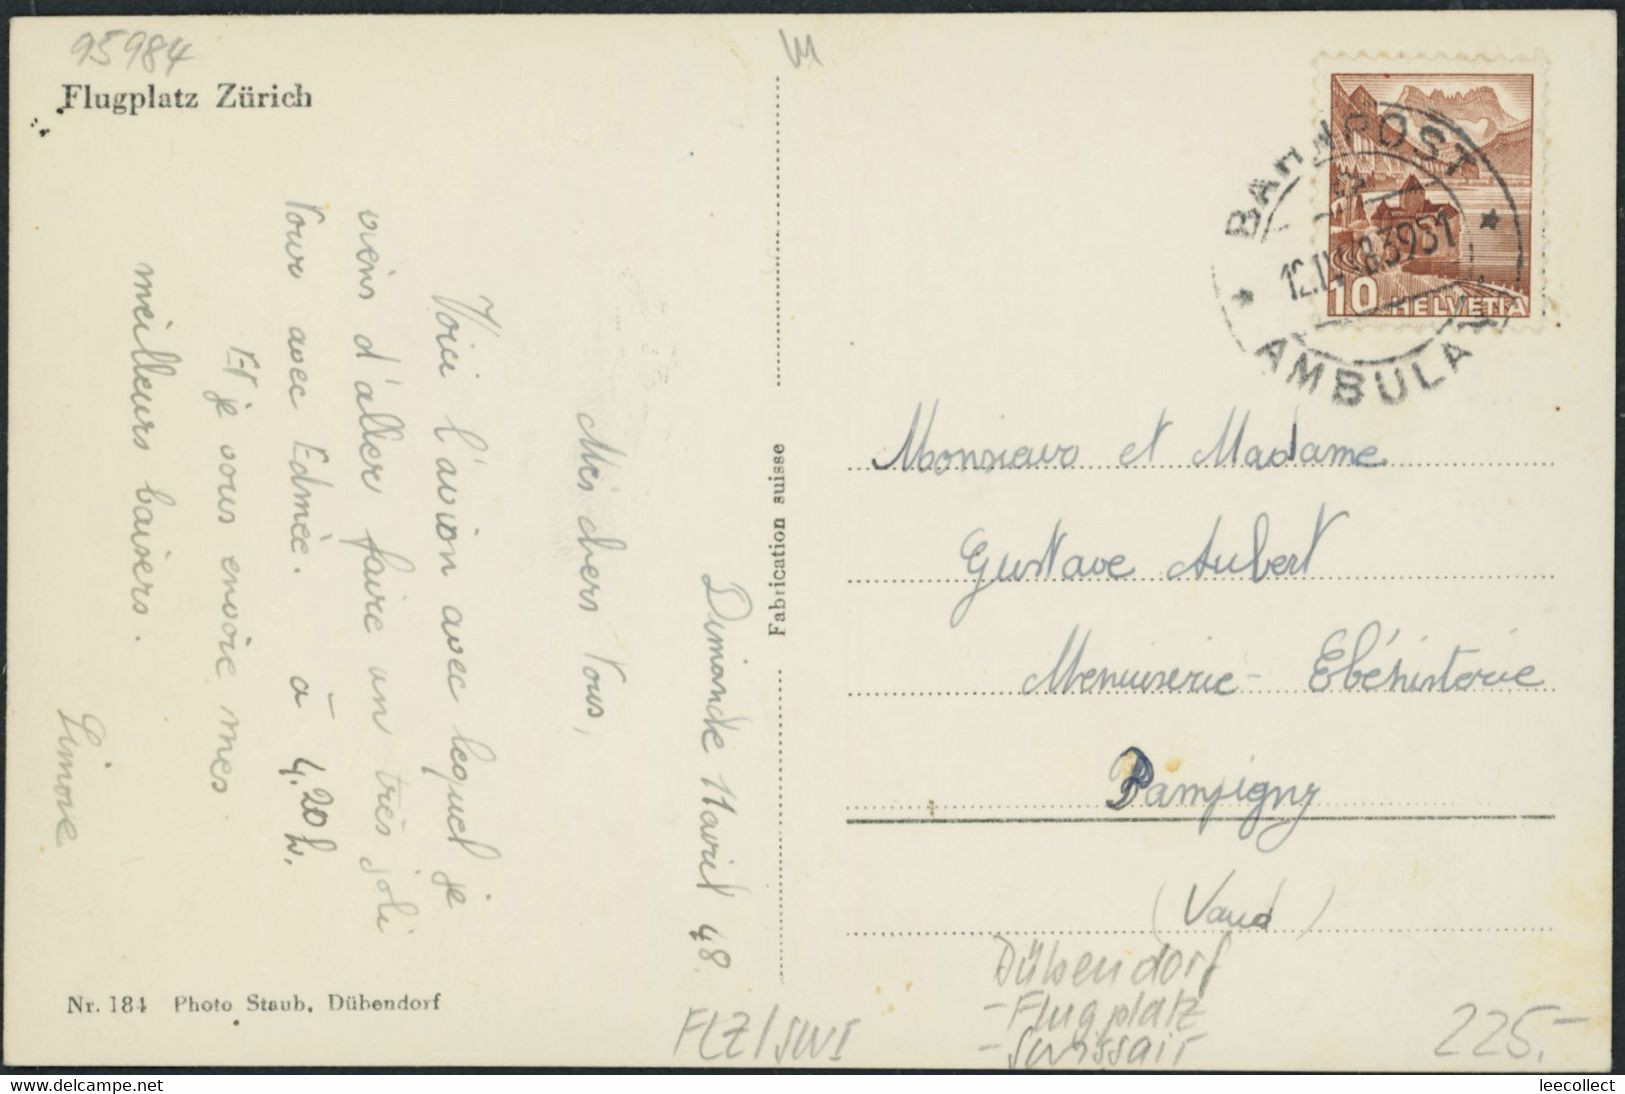 95984
Flugplatz Zürich
Dimanche 11 avril 48.
Mes chers Vous,
Voici l'avion avec lequel je
viens d'aller faire un très joli
tour avec Edmée. à 4.20 h.
Et je vous envoie mes
meilleurs baisers.
Simone
Nr. 184 Photo Staub, Dübendorf
Fabrication suisse
BAHNPOST
12.IV.48.3951
AMBULA
10 HELVETIA
Monsieur et Madame
Gustave Aubert
Menuiserie-Ebénisterie
Pampigny
(Vaud)
Dübendorf
- Flugplatz
- Swissair
FLZ/SWI
225.-
www.delcampe.net
leecollect